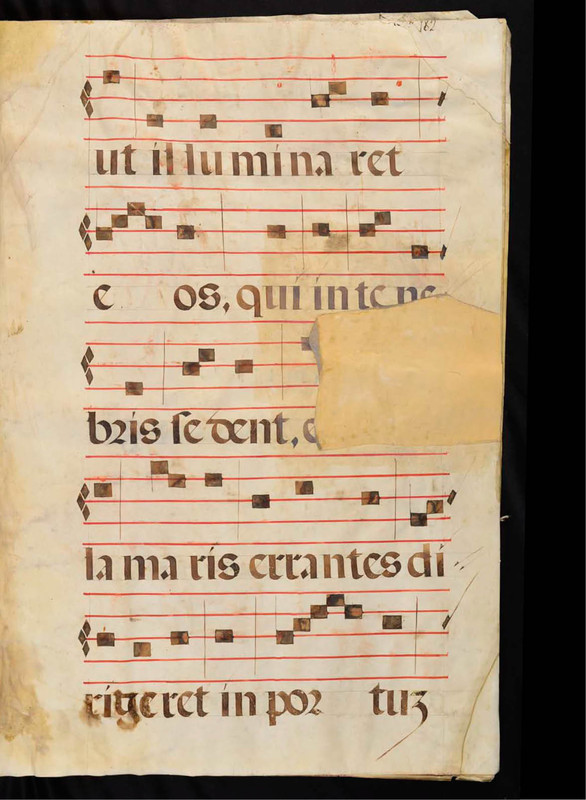 162
ut il lu mi na ret
e os, qui in te ne
bris se dent,
la ma ris errantes di
rige ret in por tuz